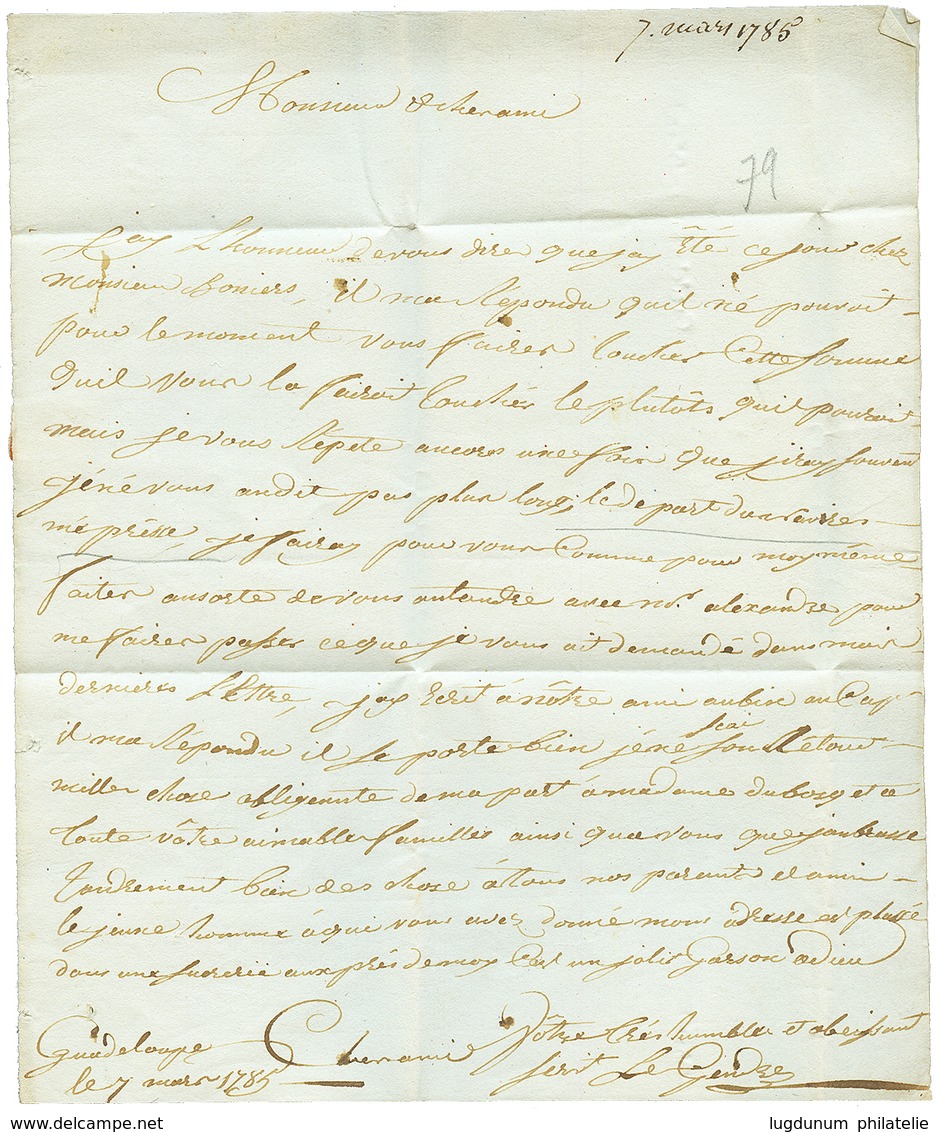 7. mars 1785
Monsieur & cher ami
79
J'ay L'honneur de vous dire que jay Eté ce jour chez
monsieur Boniers, il ma Répondu quil né pouvoit
pour le moment vous faires toucher Cette somme
quil vous la fairoit touchér le plutôts quil pouroit
mais je vous Répete ancores une fois que jiray souvent
jéné vous andit pas plus long, le départ du navires
mé présse, je fairay pour vous Comme pour moy même
faites ansorte de vous antandre avec mr. alexandre pour
me faires passer ce que je vous ait demandé dans mais
dernieres Léttre, jay Ecrit à nôtre ami aubin au Cap
il ma Répondu il se porte bien jéné sçai son Retour
milles chose obligeante de ma part à madame dubosq et à
toute vôtre aimables familles ainsi qua vous que janbrasse
tandrement bien des chose à tous nos parants et amis
le jeune homme à qui vous avez donné mons adresse est plassé
dans une sucrerie aux prés de moy C'est un jolis garson adieu
Cher ami
Vôtre trés humbles et obeissant
serv. Le Gendre
Guadeloupe
le 7 mars 1785
lugdunum philatelie